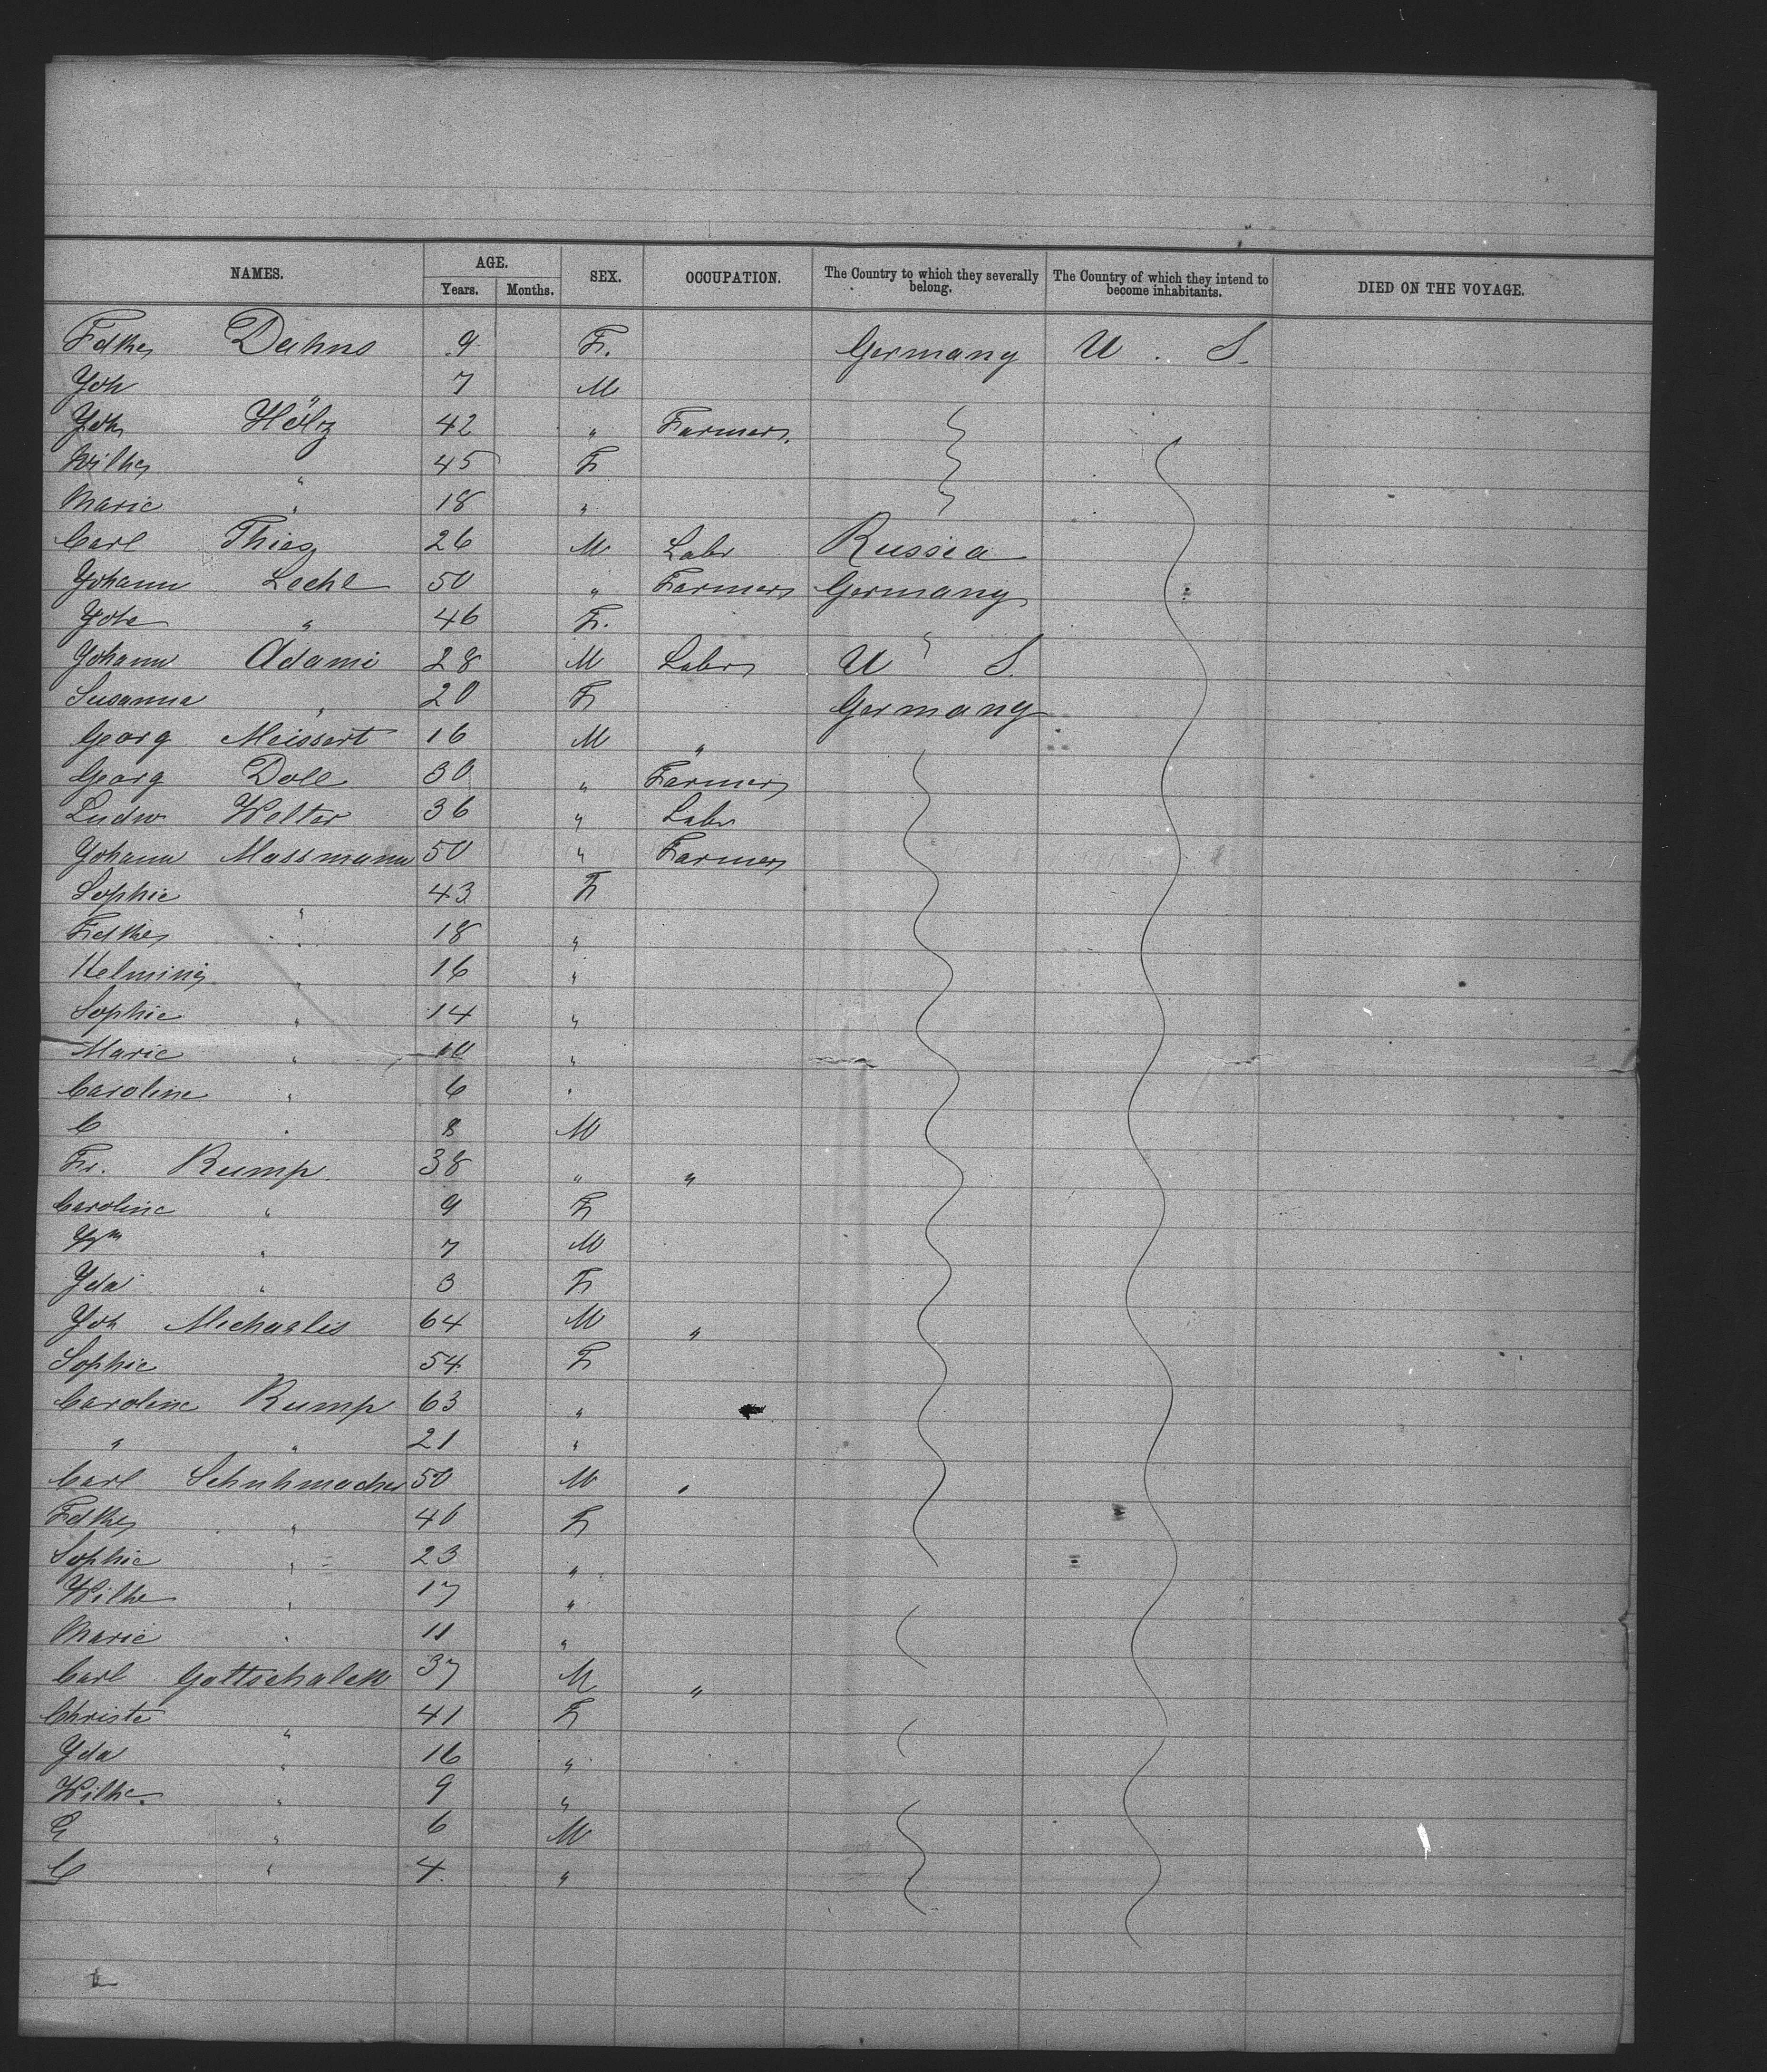 NAMES. AGE. SEX. OCCUPATION. The Country to which they severally belong. The Country of which they intend to become inhabitants. DIED ON THE VOYAGE.
Years. Months.
Fdke Dahns 9 F. Germany U. S.
Joh 7 M
Joh Hölz 42 " Farmer
Wilhe " 45 F
Marie " 18 "
Carl Thies 26 M Labr Russia
Johann Lechl 50 " Farmer Germany
" 46 F.
Johann Adami 28 M Labr U " S.
Susanna " 20 F Germany
Georg Meissert 16 M "
Georg Doll 30 " Farmer
Ludw Welter 36 " Labr
Johann Massmann 50 " Farmer
Sophie " 43 F
Fdke " 18 "
Helmine " 16 "
Sophie " 14 "
Marie " 10 "
Caroline " 6 "
C " 8 M
Fr. Rump. 38 " "
Caroline " 9 F
Wm " 7 M
Ida " 3 F
Joh Michaelis 64 M "
Sophie 54 F
Caroline Rump 63 "
" " 21 "
Carl Schuhmacher 50 M "
Fdke " 40 F
Sophie " 23 "
Wilhe " 17 "
Marie " 11 "
Carl Gottschalck 37 M "
Christe " 41 F
Ida " 16 "
Wilhe. " 9 "
" 6 M
C " 4. "